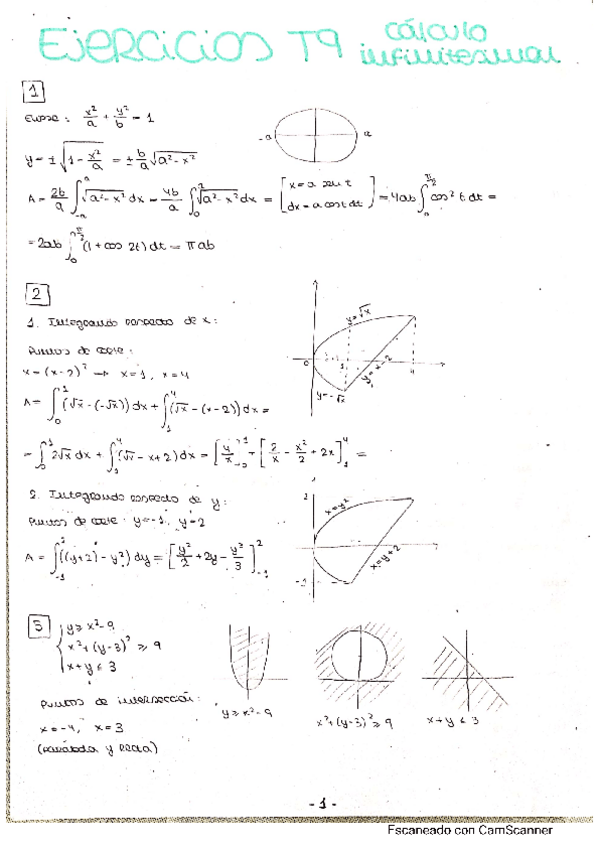 EJERCICIOS T9 cálculo infinitesimal
1
Elipse: x²/a + y²/b = 1
y = ±√(1 - x²/a) = ± b/a √(a² - x²)
-a a
A = 2b/a ∫_{-a}^{a} √(a² - x²) dx = 4b/a ∫_0^a √(a² - x²) dx = [x = a sen t dx = a cos t dt] = 4ab ∫^{π/2} cos² t dt =
= 2ab ∫_0^{π/2} (1 + cos 2t) dt = π ab
2
1. Integrando respecto de x:
Puntos de corte:
x = (x - 2)² → x = 1, x = 4
A = ∫_0^1 (√x - (-√x)) dx + ∫_1^4 (√x - (x - 2)) dx =
= ∫_0^1 2√x dx + ∫_1^4 (√x - x + 2) dx = [4/x]_0^1 + [2/x - x²/2 + 2x]_1^4 =
y = √x
y = x - 2
y = -√x
0 1 4
2. Integrando respecto de y:
Puntos de corte: y = -1, y = 2
A = ∫_{-1}^2 ((y + 2) - y²) dy = [y²/2 + 2y - y³/3]_{-1}^2
2
x = y²
x = y + 2
y ≥ x² - 9
x² + (y - 3)² ≥ 9
x + y ≤ 3
Puntos de intersección:
x = -4, x = 3
(parábola y recta)
y ≥ x² - 9
x² + (y - 3)² ≥ 9
x + y ≤ 3
- 1 -
Escaneado con CamScanner